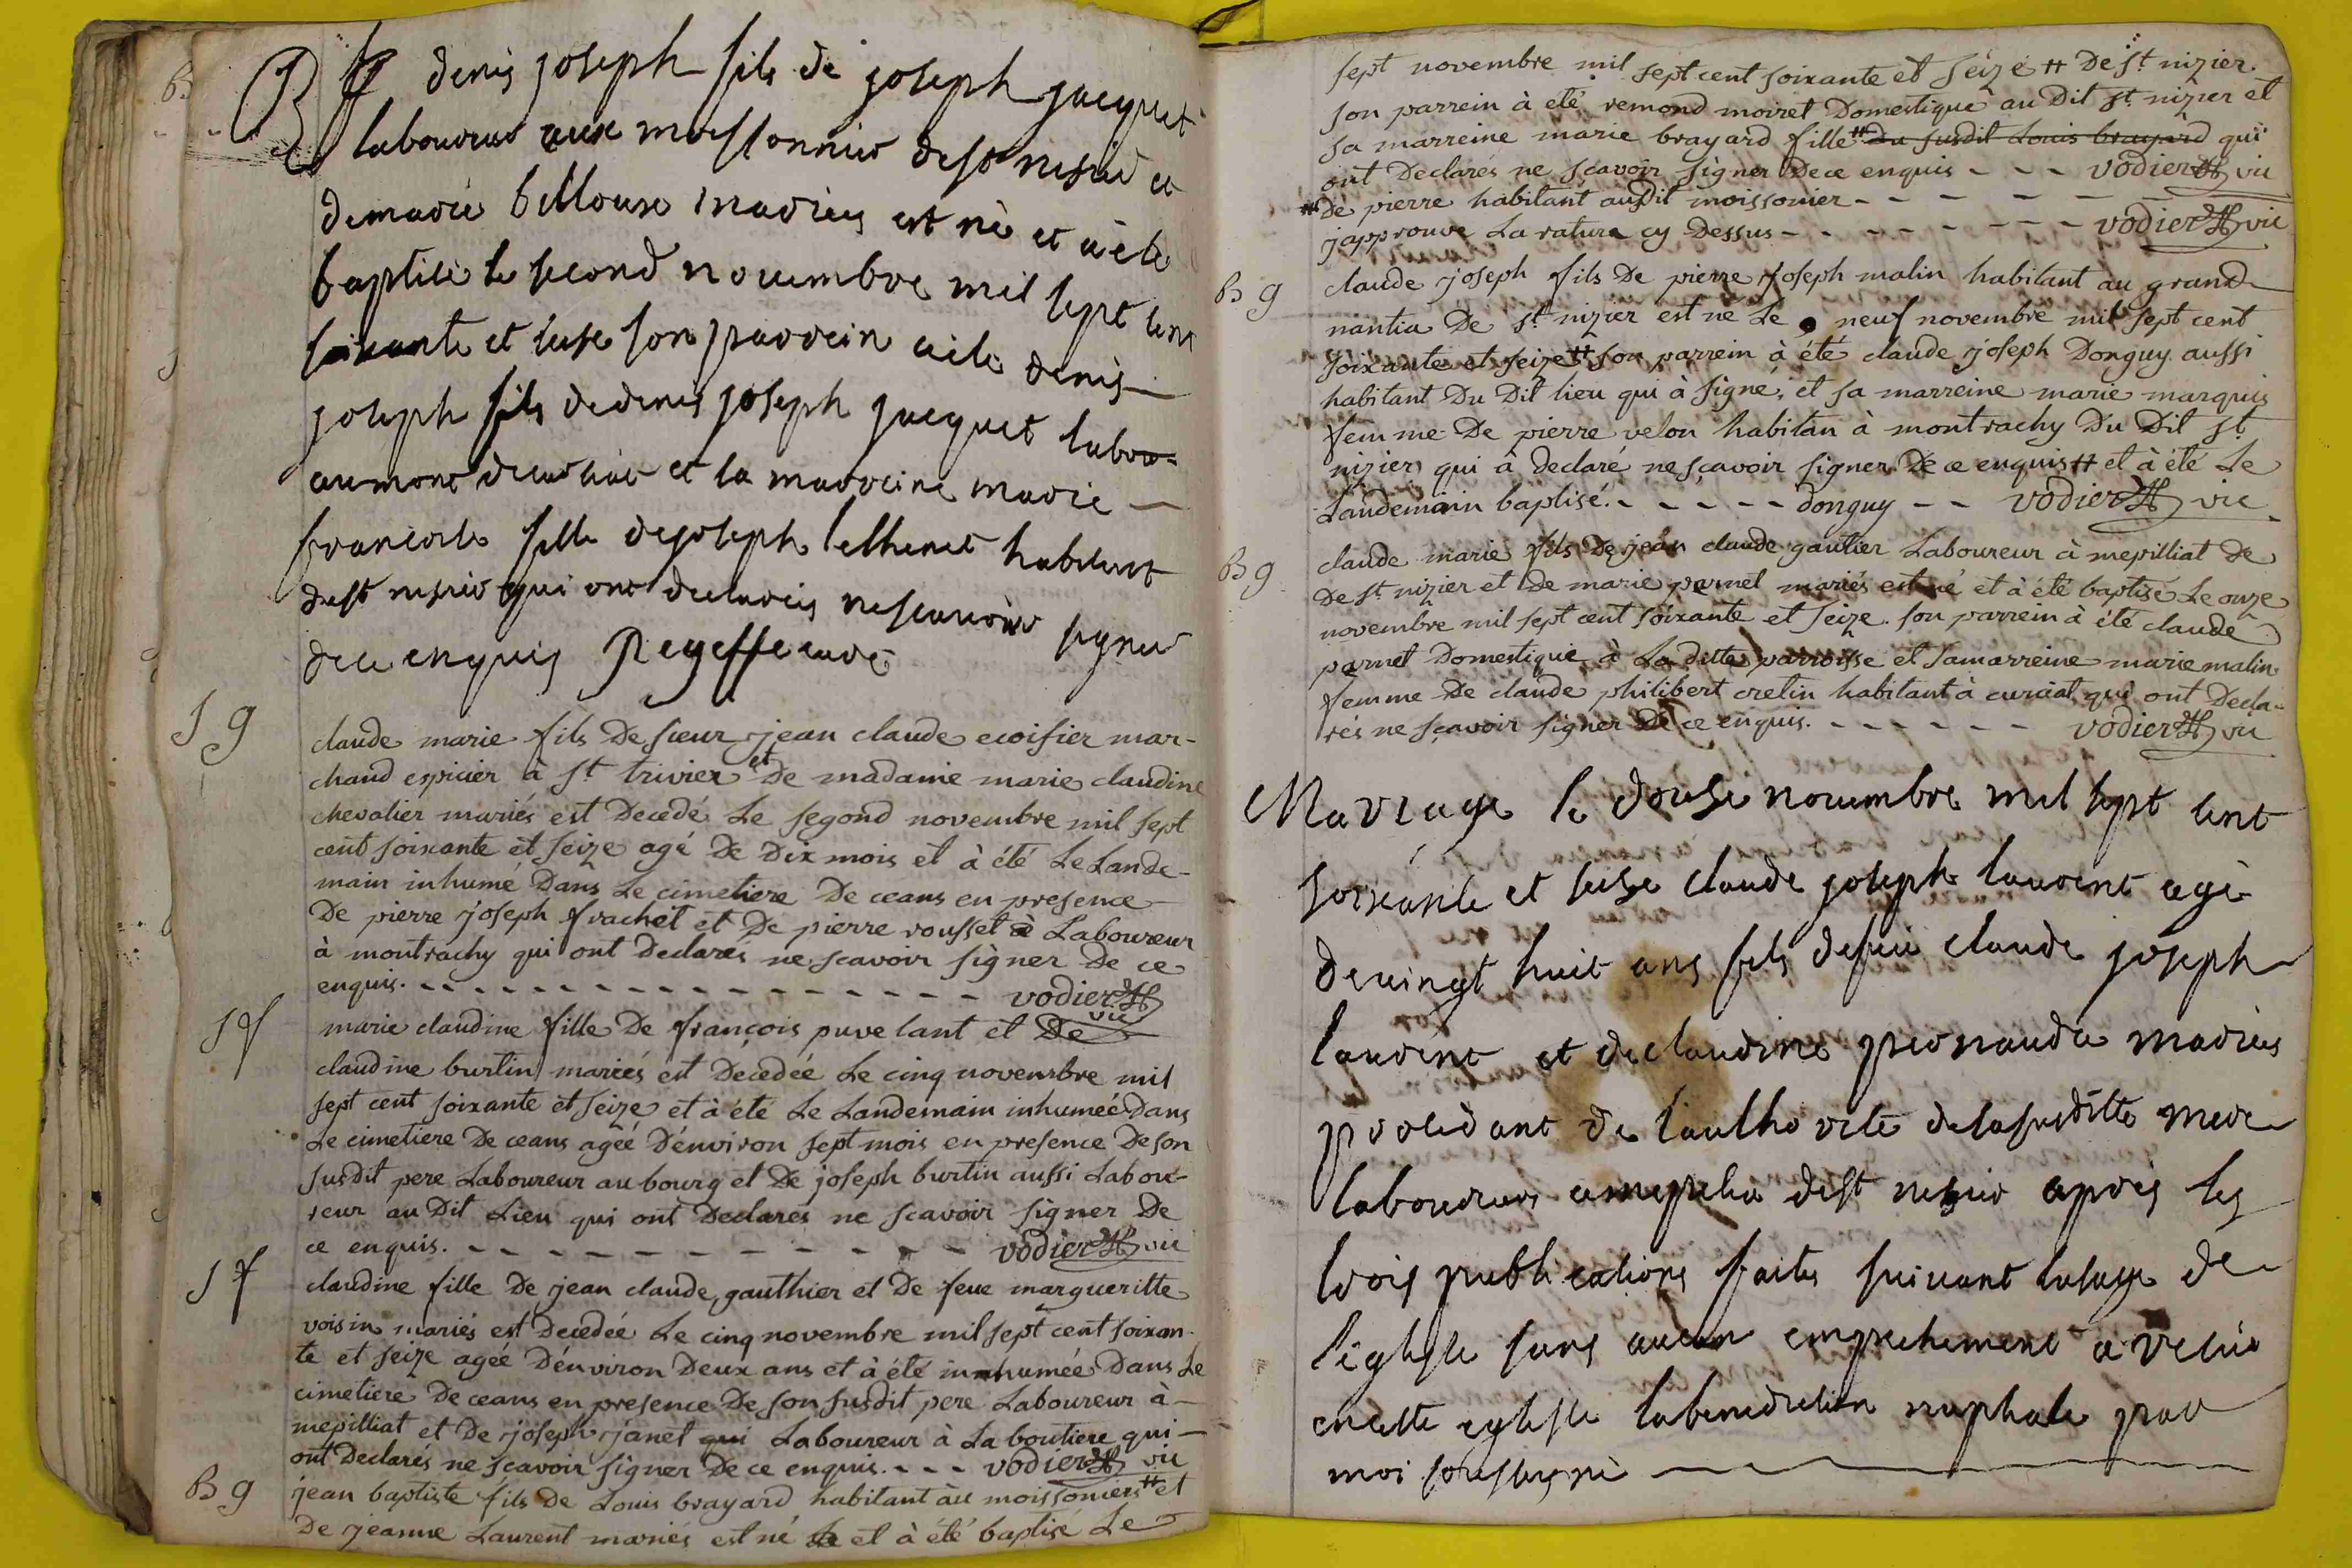 B g denis joseph fils de joseph jacquet
laboureur aux moissonnier de st nisier et
de marie bellouse mariés est né et a ete
baptisé le second novembre mil sept cent
soixante et seise son parrein a ete denis
joseph fils de denis joseph jacquet labou-
au mont de curciat et la marreine marie
francoise fille de joseph habitant
de st nisier qui ont declarés ne scavoir signer
de ce enquis Regeffe curé
S g
claude marie fils De sieur jean claude ecoifier mar-
chand epicier à st. trivier et De madame marie claudine
chevalier mariés est Decedé Le segond novembre mil sept
cent soixante et seize agé De Dix mois et à été Le Lande-
main inhumé Dans Le cimetiere De ceans en presence
De pierre joseph frachet et De pierre rousset à Laboureur
à montrachy qui ont Declarés ne scavoir signer De ce
enquis. - - - - - - - - - - - - vodier vic
S f
marie claudine fille De françois puvelant et De
claudine burtin mariés est Decedée Le cinq novembre mil
sept cent soixante et seize et à été Le Landemain inhumée Dans
Le cimetiere De ceans agée D'environ sept mois en presence De son
susdit pere Laboureur au bourg et De joseph burtin aussi Labou-
reur au Dit Lieu qui ont Declarés ne scavoir signer De
ce enquis. - - - - - - - - - - vodier vic
S f
claudine fille De jean claude gauthier et De feue margueritte
voisin mariés est Decedée Le cinq novembre mil sept cent soixan-
te et seize agée D'environ Deux ans et à été inhumée Dans Le
cimetiere De ceans en presence De son susdit pere Laboureur à
mepilliat et De joseph janet qui Laboureur à La boutiere qui
ont Declarés ne scavoir signer De ce enquis. - - - vodier vic
B g
jean baptiste fils de Louis brayard habitant au moissoniers # et
De jeanne Laurent mariés est né et à été baptisé Le
sept novembre mil sept cent soixante et seize # De st. nizier.
son parrein à été remond moiret Domestique au Dit st. nizier et
sa marreine marie brayard fille # du susdit Louis brayard qui
ont Declarés ne sçavoir signer De ce enquis - - - vodier vic
# De pierre habitant au Dit moissonier - - - - - -
j'approuve La rature cy Dessus - - - - - - - - vodier vic
B g
claude joseph fils De pierre joseph malin habitant au grand
nantia De st. nizier est né Le neuf novembre mil sept cent
soixante et seize # son parrein à été claude joseph Donguy aussi
habitant Du Dit lieu qui à signé, et sa marreine marie marquis
femme De pierre velon habitan à montrachy Du Dit st.
nizier qui à declaré ne sçavoir signer De ce enquis # et à été Le
Landemain baptisé. - - - - - donguy - - vodier vic
B g
claude marie fils De jean claude gautier Laboureur à mepilliat de
De st. nizier et De marie parnet mariés est né et à été baptisé Le onze
novembre mil sept cent soixante et seize. son parrein à été claude
parnet Domestique à La ditte parroisse et sa marreine marie malin
femme De claude philibert cretin habitant à curciat qui ont Decla-
rés ne sçavoir signer De ce enquis. - - - - - - vodier vic
Mariage le douse novembre mil sept cent
soixante et seise claude joseph laurent agé
de vingt huit ans fils de feu claude joseph
laurent et de claudine mariés
procedant de l'authorité de la susditte mere
laboureur a mepelia de st nisier apres les
trois publications faites suivant lusage de
l'eglise sans aucun empechement a recue
en cette eglise la benediction nuptiale par
moi soussigné